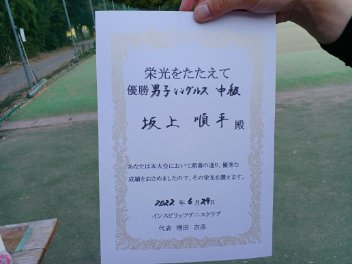 栄光をたたえて
優勝 男子シングルス 中級
坂上 順平 殿
あなたは本大会において頭書の通り、優秀な
成績をおさめましたので、その栄光を讃えます。
2022 年 6 月 29日
インスピリッツテニスクラブ
代表 増田 吉彦